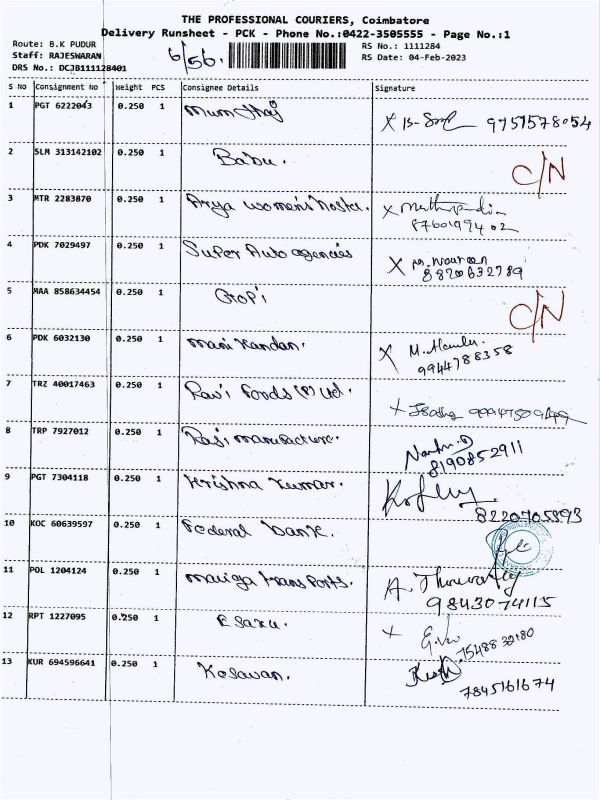 THE PROFESSIONAL COURIERS, Coimbatore
Delivery Runsheet - PCK - Phone No.:0422-3505555 - Page No.:1
Route: B.K PUDUR
Staff: RAJESWARAN
DRS No.: DCJB111128401
6/56.
RS No.: 1111284
RS Date: 04-Feb-2023
S No Consignment No Weight PCS Consignee Details Signature
1 PGT 6222043 0.250 1 9751578054
2 SLM 313142102 0.250 1 Babu. C/N
3 MTR 2283870 0.250 1 Arya women's hostel. X
8760199402
4 PDK 7029497 0.250 1 Super Auto agencies X
8820632789
5 MAA 858634454 0.250 1 Gopi C/N
6 PDK 6032130 0.250 1 Mani Kandan. X
9944788358
7 TRZ 40017463 0.250 1 Ravi Foods (P) Ltd.
8 TRP 7927012 0.250 1 Rasi manufacture.
8190852911
9 PGT 7304118 0.250 1 Krishna Kumar.
8220705893
10 KOC 60639597 0.250 1 Federal bank.
11 POL 1204124 0.250 1 transports.
9843074115
12 RPT 1227095 0.250 1 Esaku.
13 KUR 694596641 0.250 1 Kesavan.
7845161674